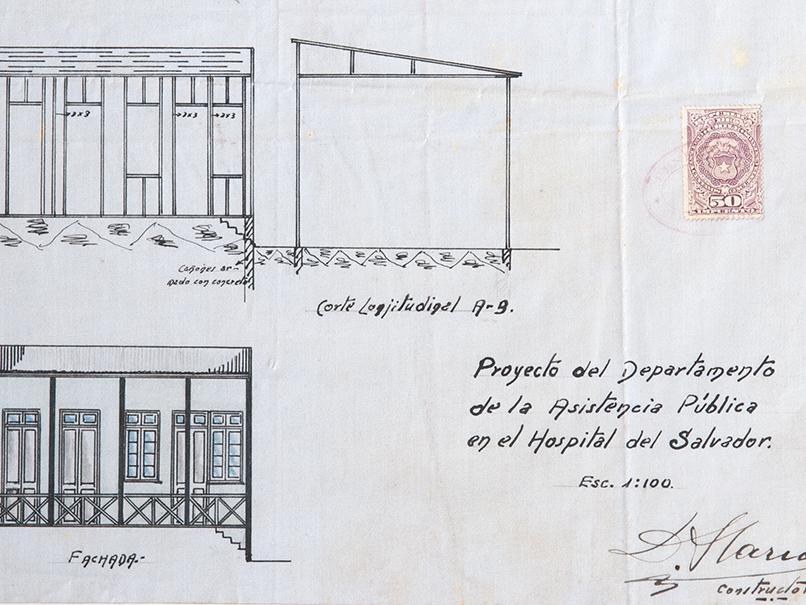 2x3
2x3
2x3
Cañones ar-
mado con concreto
Corte Longitudinal A-B.
50
IMPUESTO
Proyecto del Departamento
de la Asistencia Pública
en el Hospital del Salvador.
Esc. 1:100.
FACHADA.-
Constructor